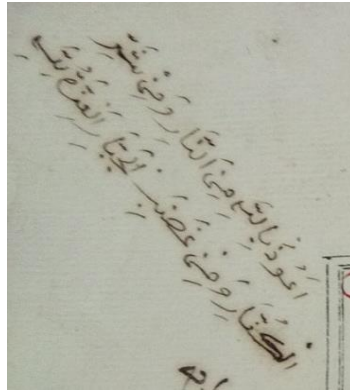 اَعُوذُ بِاللهِ مِنَ النَّارِ وَمِنْ شَرِّ
الْكُفَّارِ وَمِنْ غَضَبِ الْجَبَّارِ الْعِزَّةُ لِلهِ